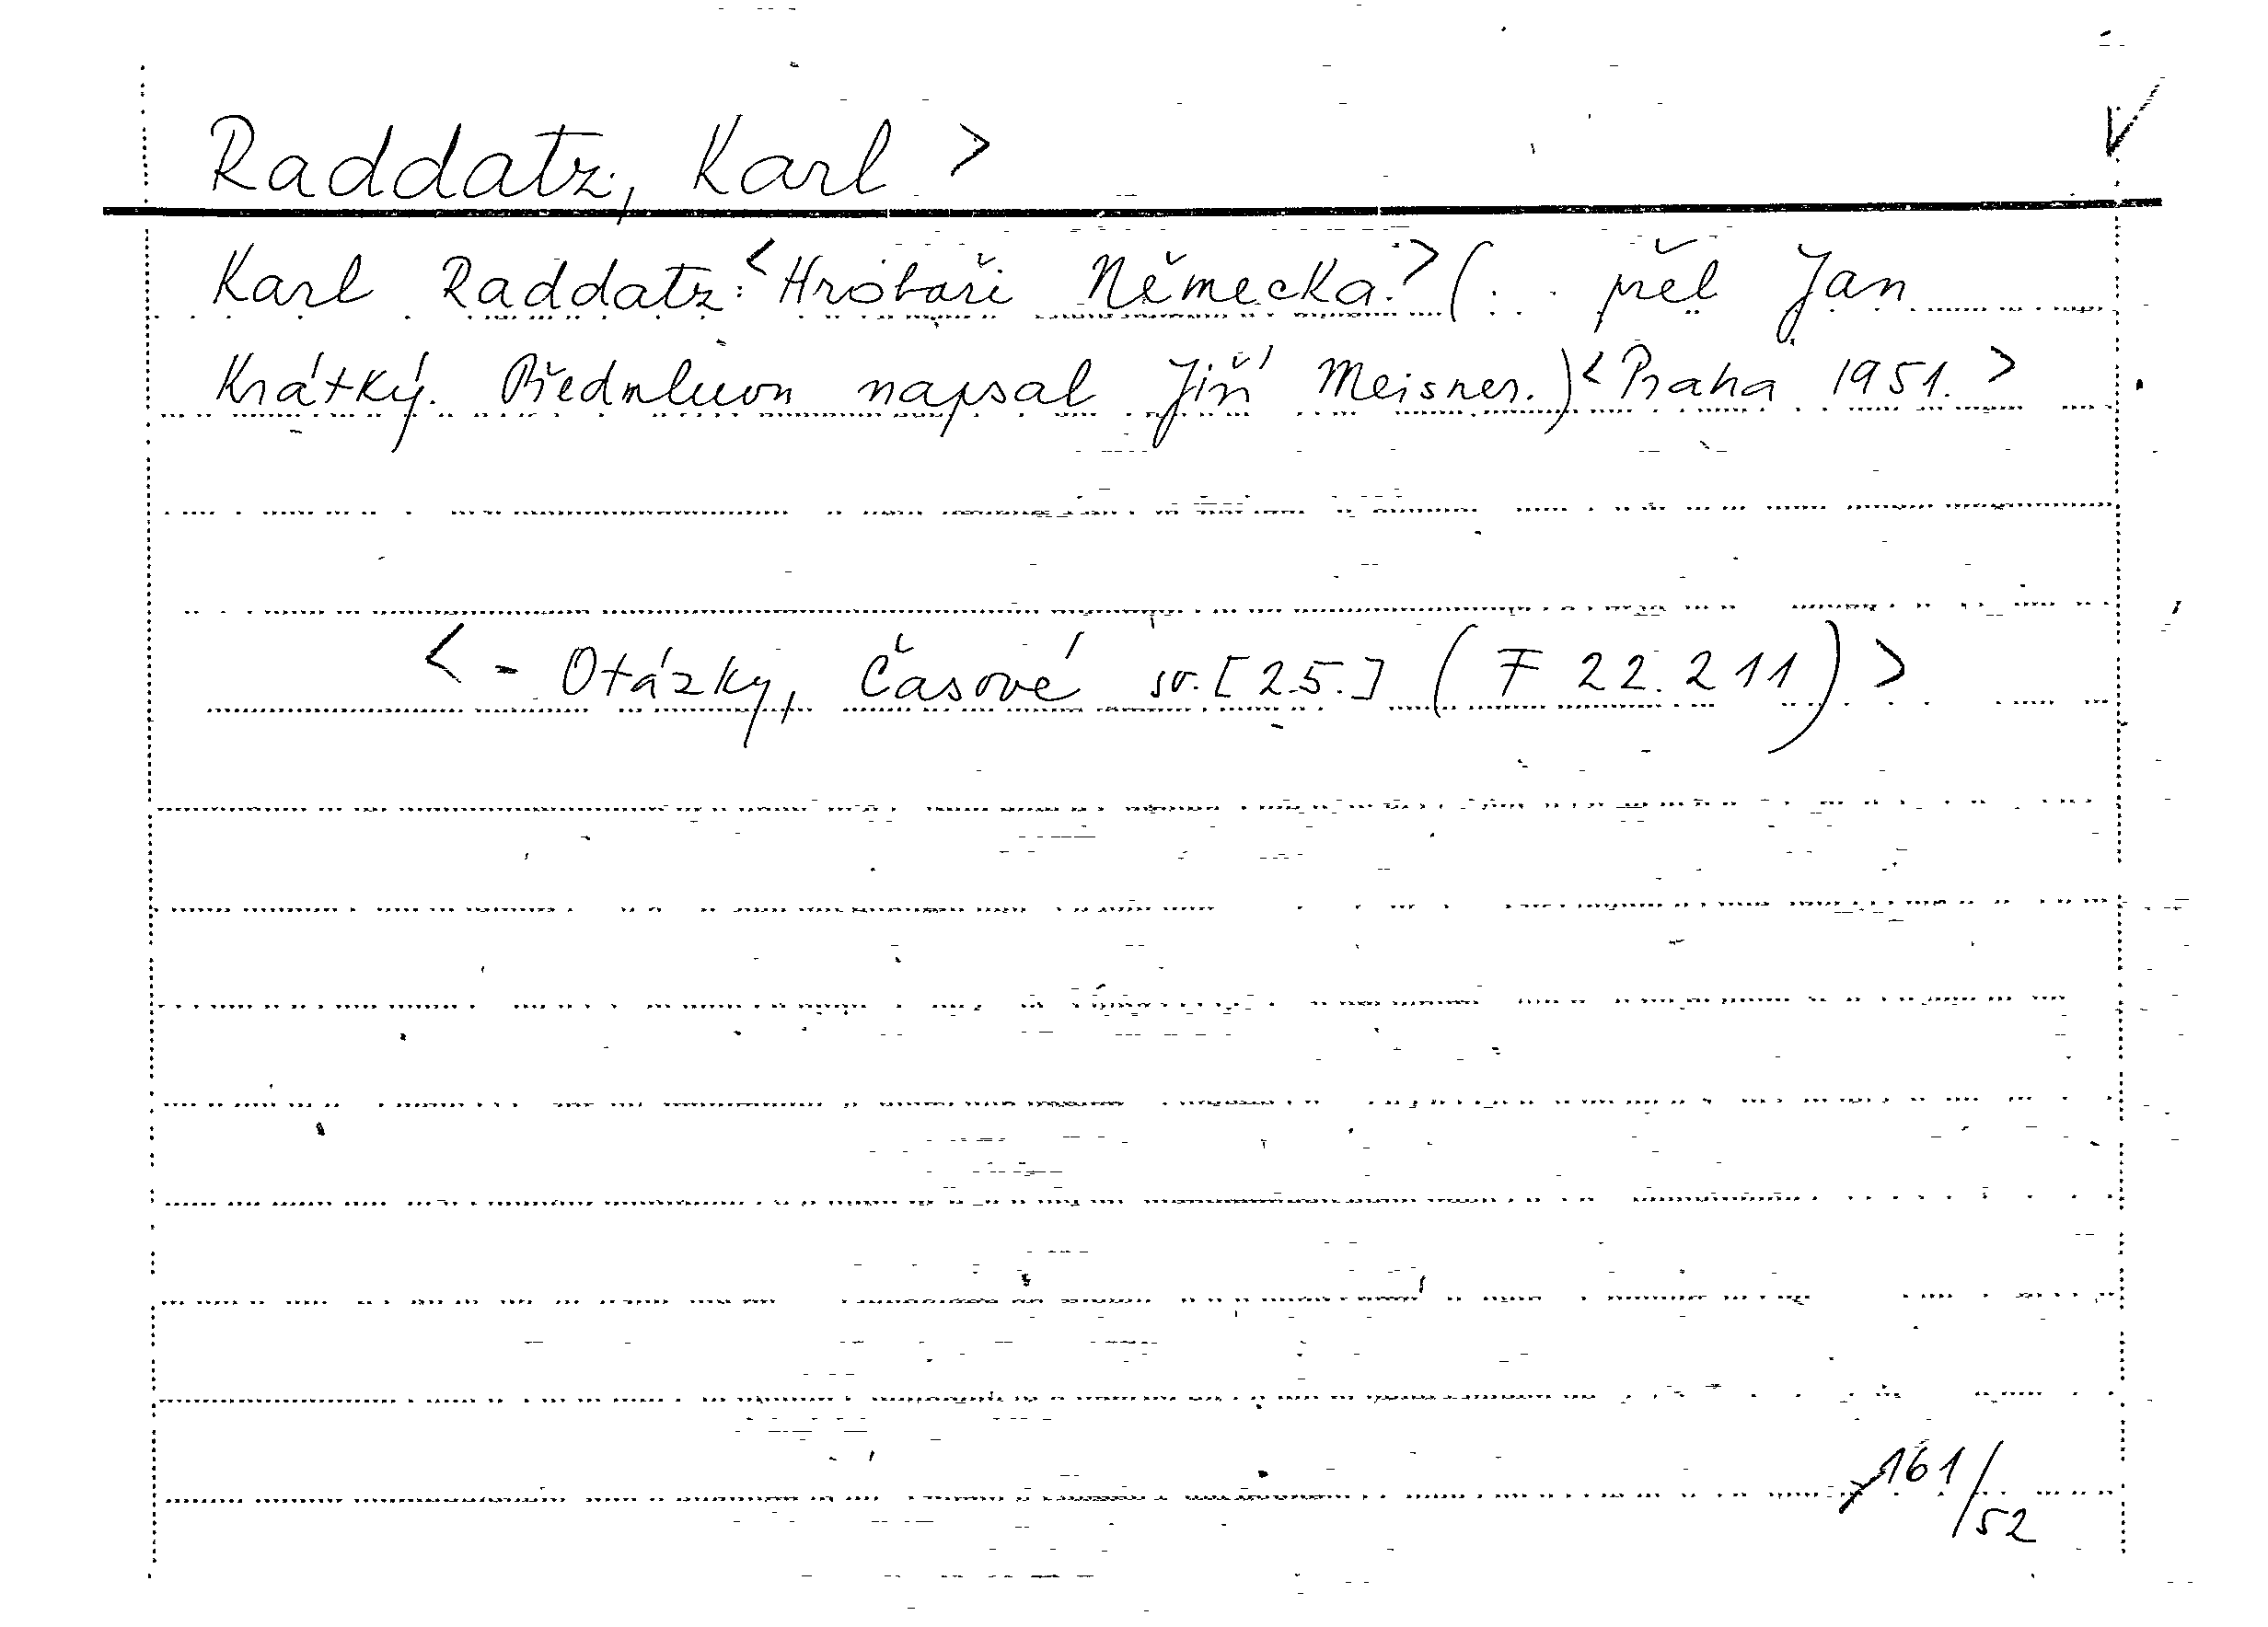 Raddatz, Karl >
Karl Raddatz: <Hrobaři Německa.> (.. přel Jan
Krátký. Předmluvu napsal Jiří Meisner.) <Praha 1951.>
< - Otázky, Časové sv. [25.] (F 22.211) >
161/52